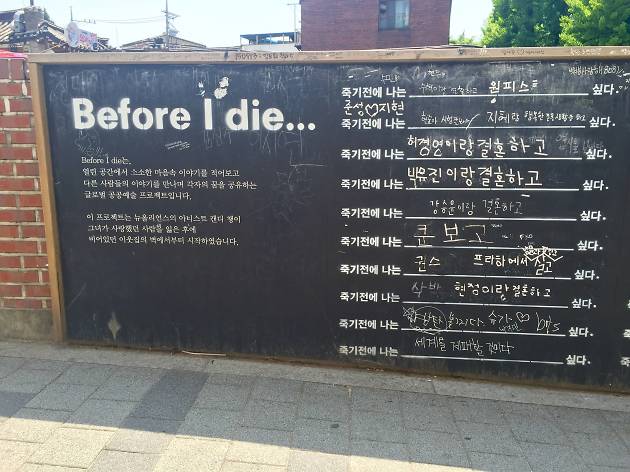 Before I die...
Before I die는,
열린 공간에서 소소한 마음속 이야기를 적어보고
다른 사람들의 이야기를 만나며 각자의 꿈을 공유하는
글로벌 공공예술 프로젝트입니다.
이 프로젝트는 뉴올리언스의 아티스트 캔디 챙이
그녀가 사랑했던 사람을 잃은 후에
비어있던 이웃집의 벽에서부터 시작하였습니다.
죽기전에 나는 원피스 싶다.
준성♡지현
죽기전에 나는 지혜랑 행복한 싶다.
죽기전에 나는 허경연이랑결혼하고 싶다.
죽기전에 나는 박유진이랑결혼하고 싶다.
죽기전에 나는 강승윤이랑 결혼하고 싶다.
죽기전에 나는 쿤 보고 싶다.
죽기전에 나는 권스 프라하에서 살고 싶다.
죽기전에 나는 현정이랑결혼하고 싶다.
죽기전에 나는 슈가♡ bts 싶다.
죽기전에 나는 세계를 제패할 것이다 싶다.